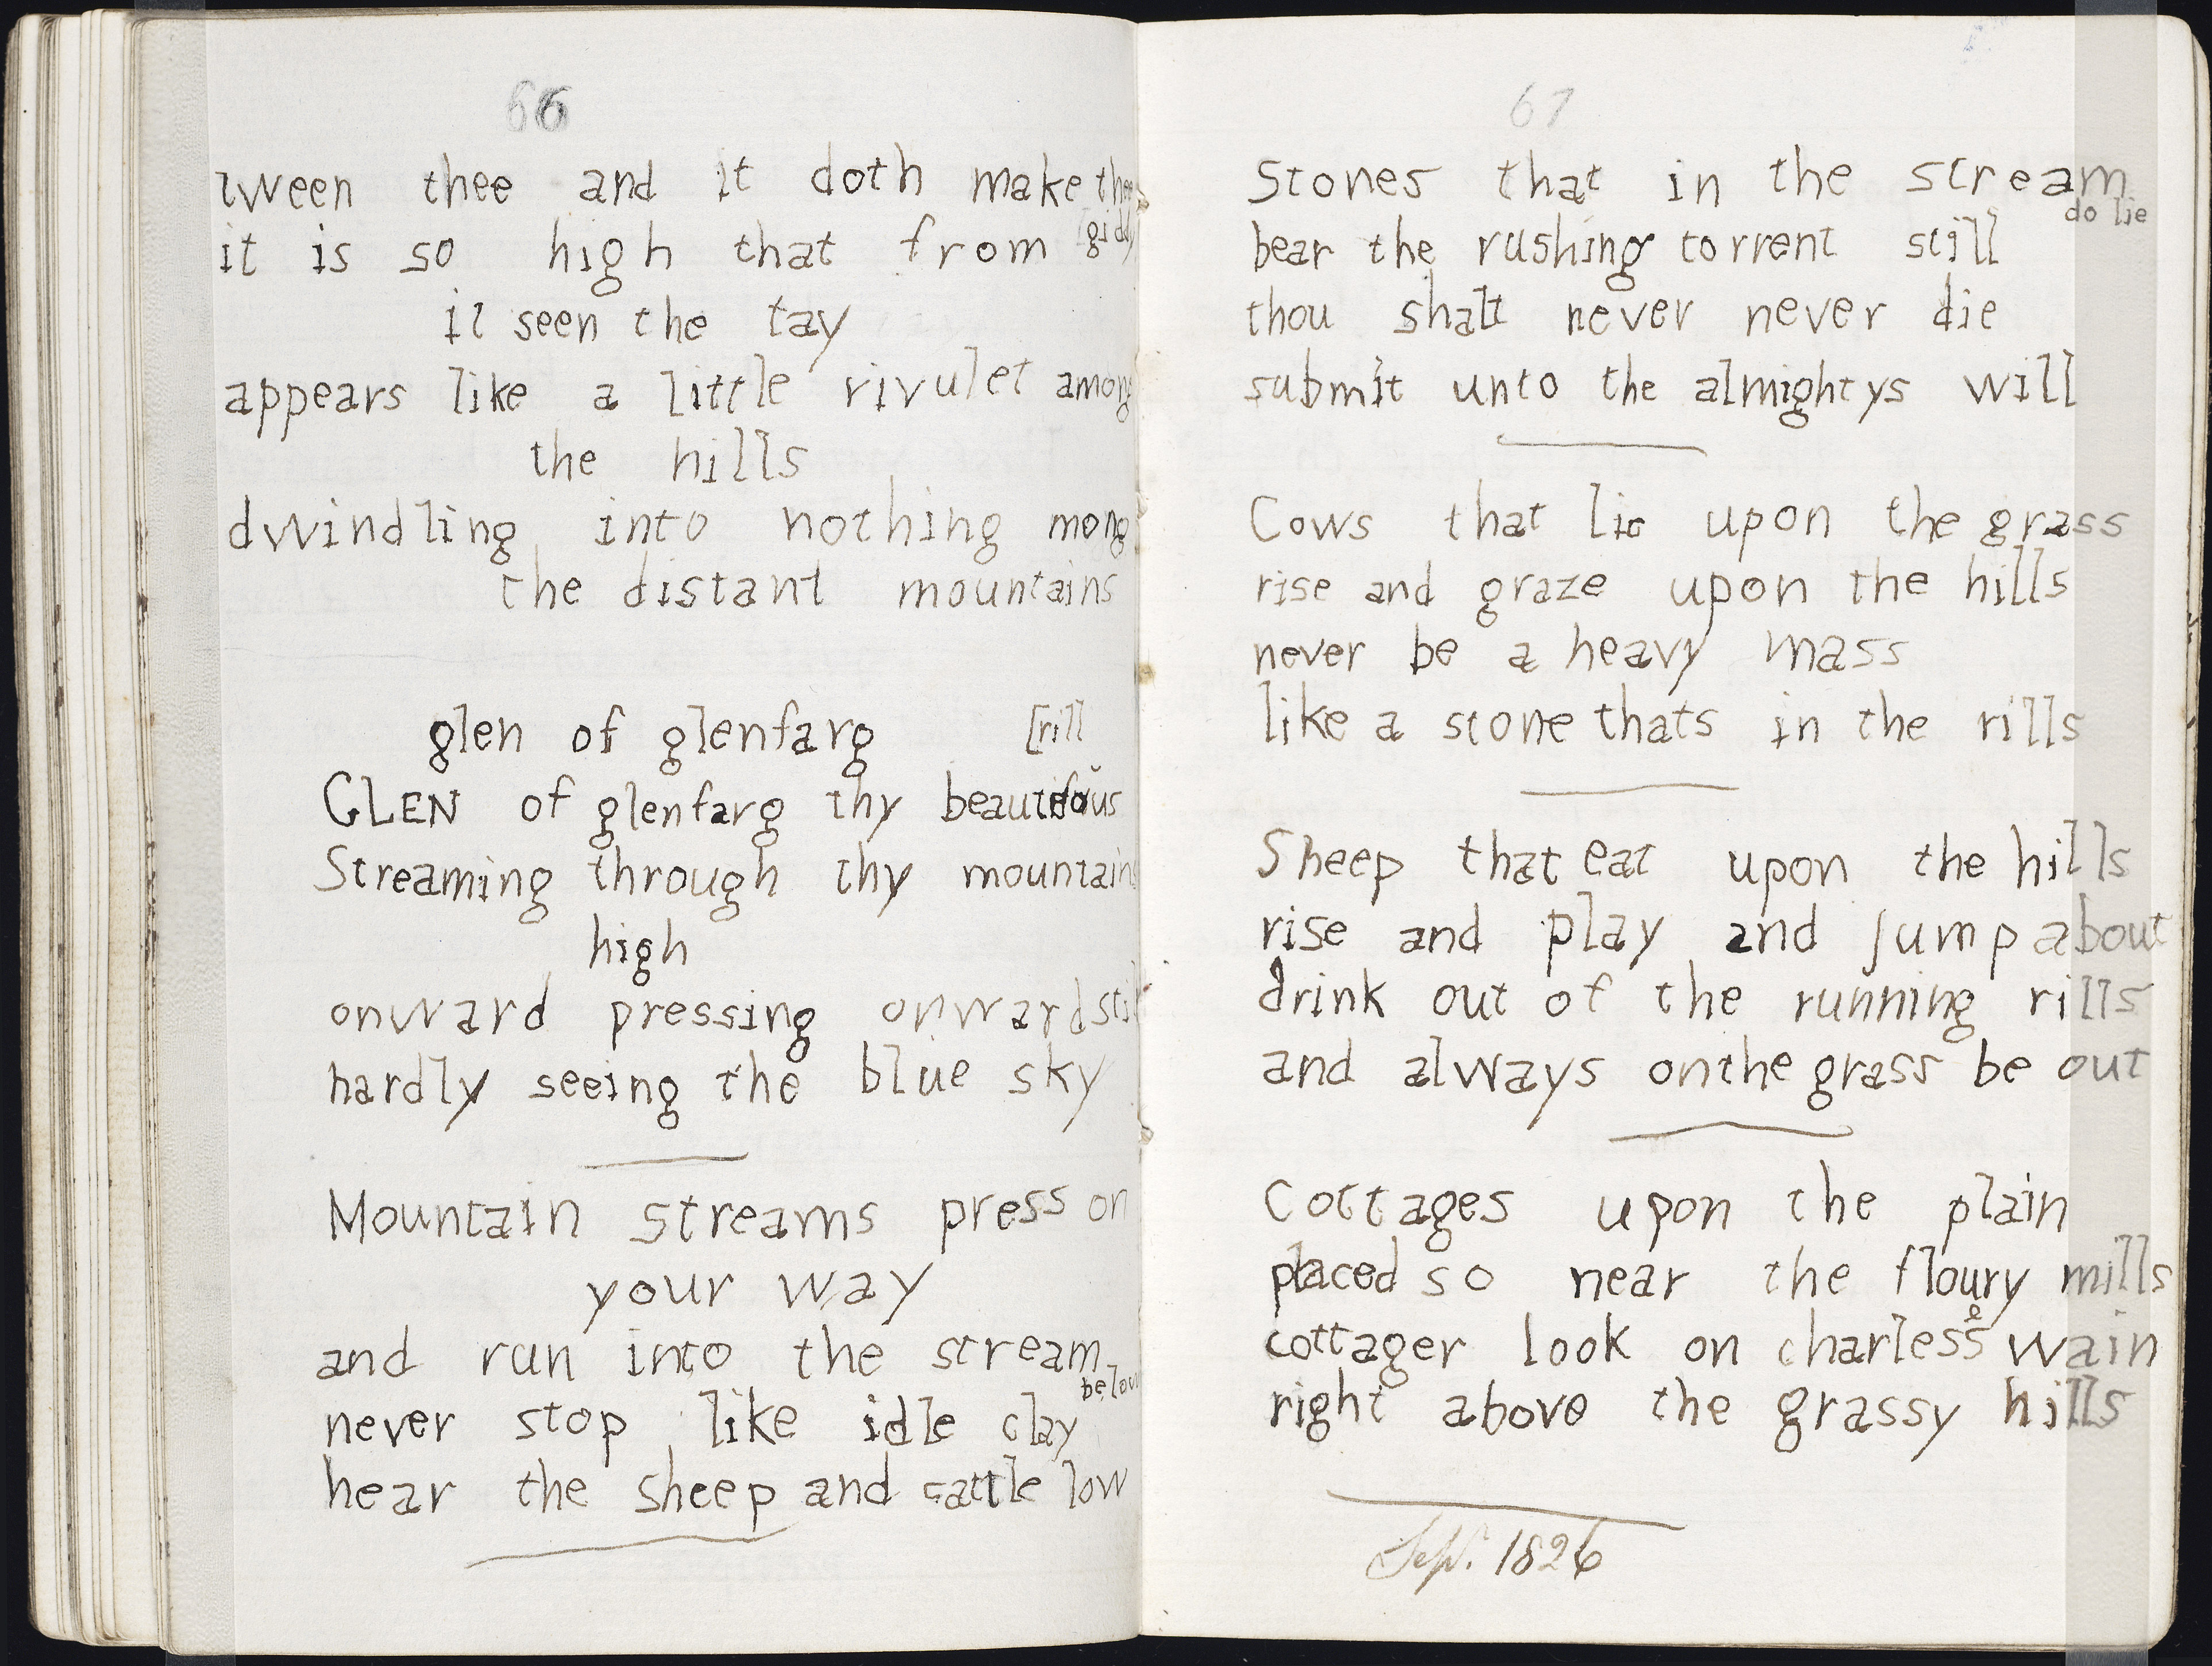 66
tween thee and it doth make thee
[giddy
it is so high that from
it seen the tay
appears like a little rivulet among
the hills
dwindling into nothing mong
the distant mountains
glen of glenfarg
[rill
GLEN of glenfarg thy beauteous
Streaming through thy mountains
high
onward pressing onward still
hardly seeing the blue sky
Mountain streams press on
your way
and run into the stream
below
never stop like idle clay
hear the sheep and cattle low
67
Stones that in the stream
do lie
bear the rushing torrent still
thou shalt never never die
submit unto the almightys will
Cows that lie upon the grass
rise and graze upon the hills
never be a heavy mass
like a stone thats in the rills
Sheep that eat upon the hills
rise and play and jump about
drink out of the running rills
and always onthe grass be out
Cottages upon the plain
placed so near the floury mills
cottager look on charleses wain
right above the grassy hills
Sept. 1826